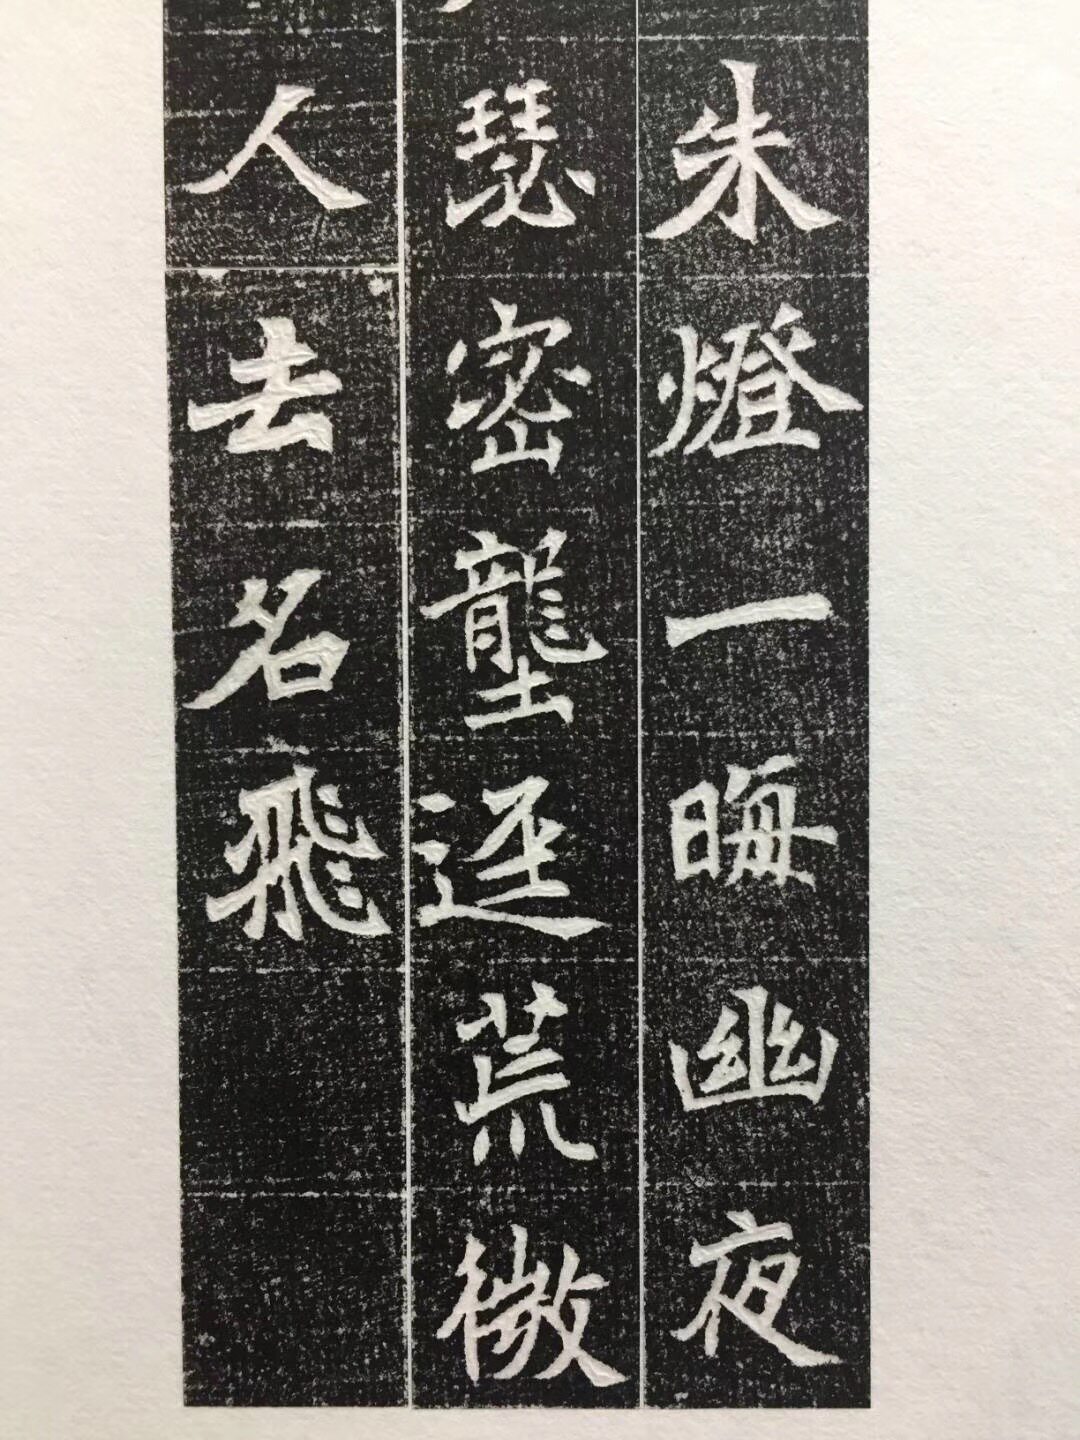 朱燈一晦幽夜
瑟密壟逕荒微
人去名飛